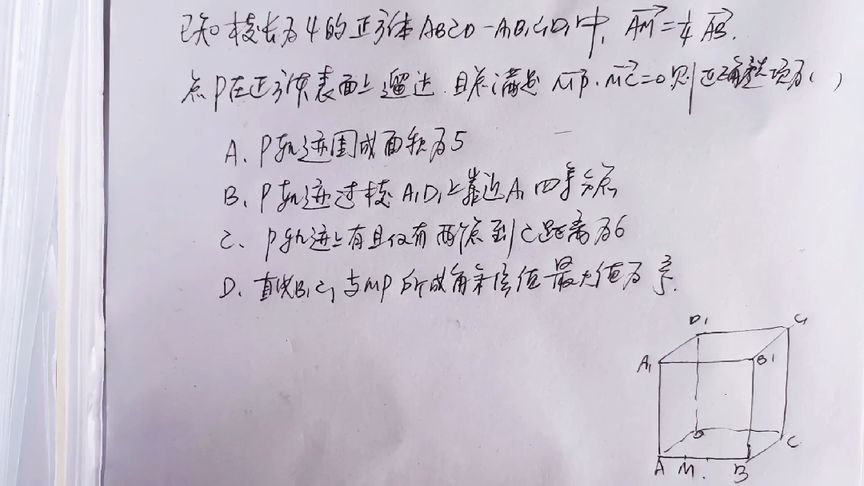 已知棱长为4的正方体ABCD-A₁B₁C₁D₁中, AM=¼AB.
点P在正方体表面上遛达,且总满足 MP·MC=0则正确选项为( )
A、P轨迹围成面积为5
B、P轨迹过棱A₁D₁上靠近A₁四等分点
C、P轨迹上有且仅有两个点到C距离为6
D、直线B₁C₁与MP所成角余弦值最大值为
D₁ C₁
A₁ B₁
D C
A M B